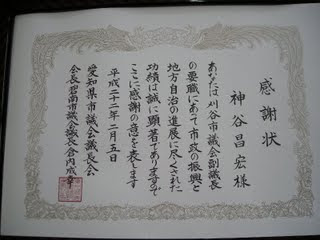 感謝状
神谷昌宏様
あなたは刈谷市議会副議長
の要職にあって市政の振興と
地方自治の進展に尽くされた
功績は誠に顕著であります
ここに感謝の意を表します
平成二十二年二月五日
愛知県市議会議長会
会長碧南市議会議長倉内成幸